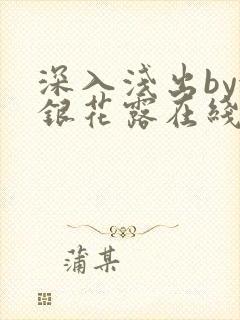 深入淺出by
銀花露在綫
蒲某